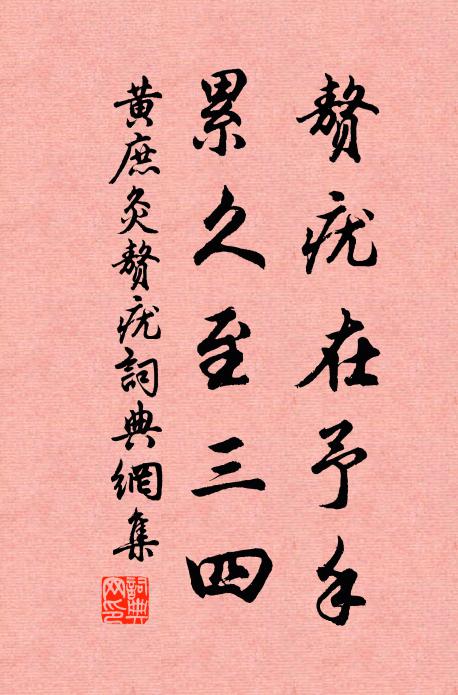 贅疣在予手
累久至三四
黃庶灸贅疣詞典網集
詞典網印